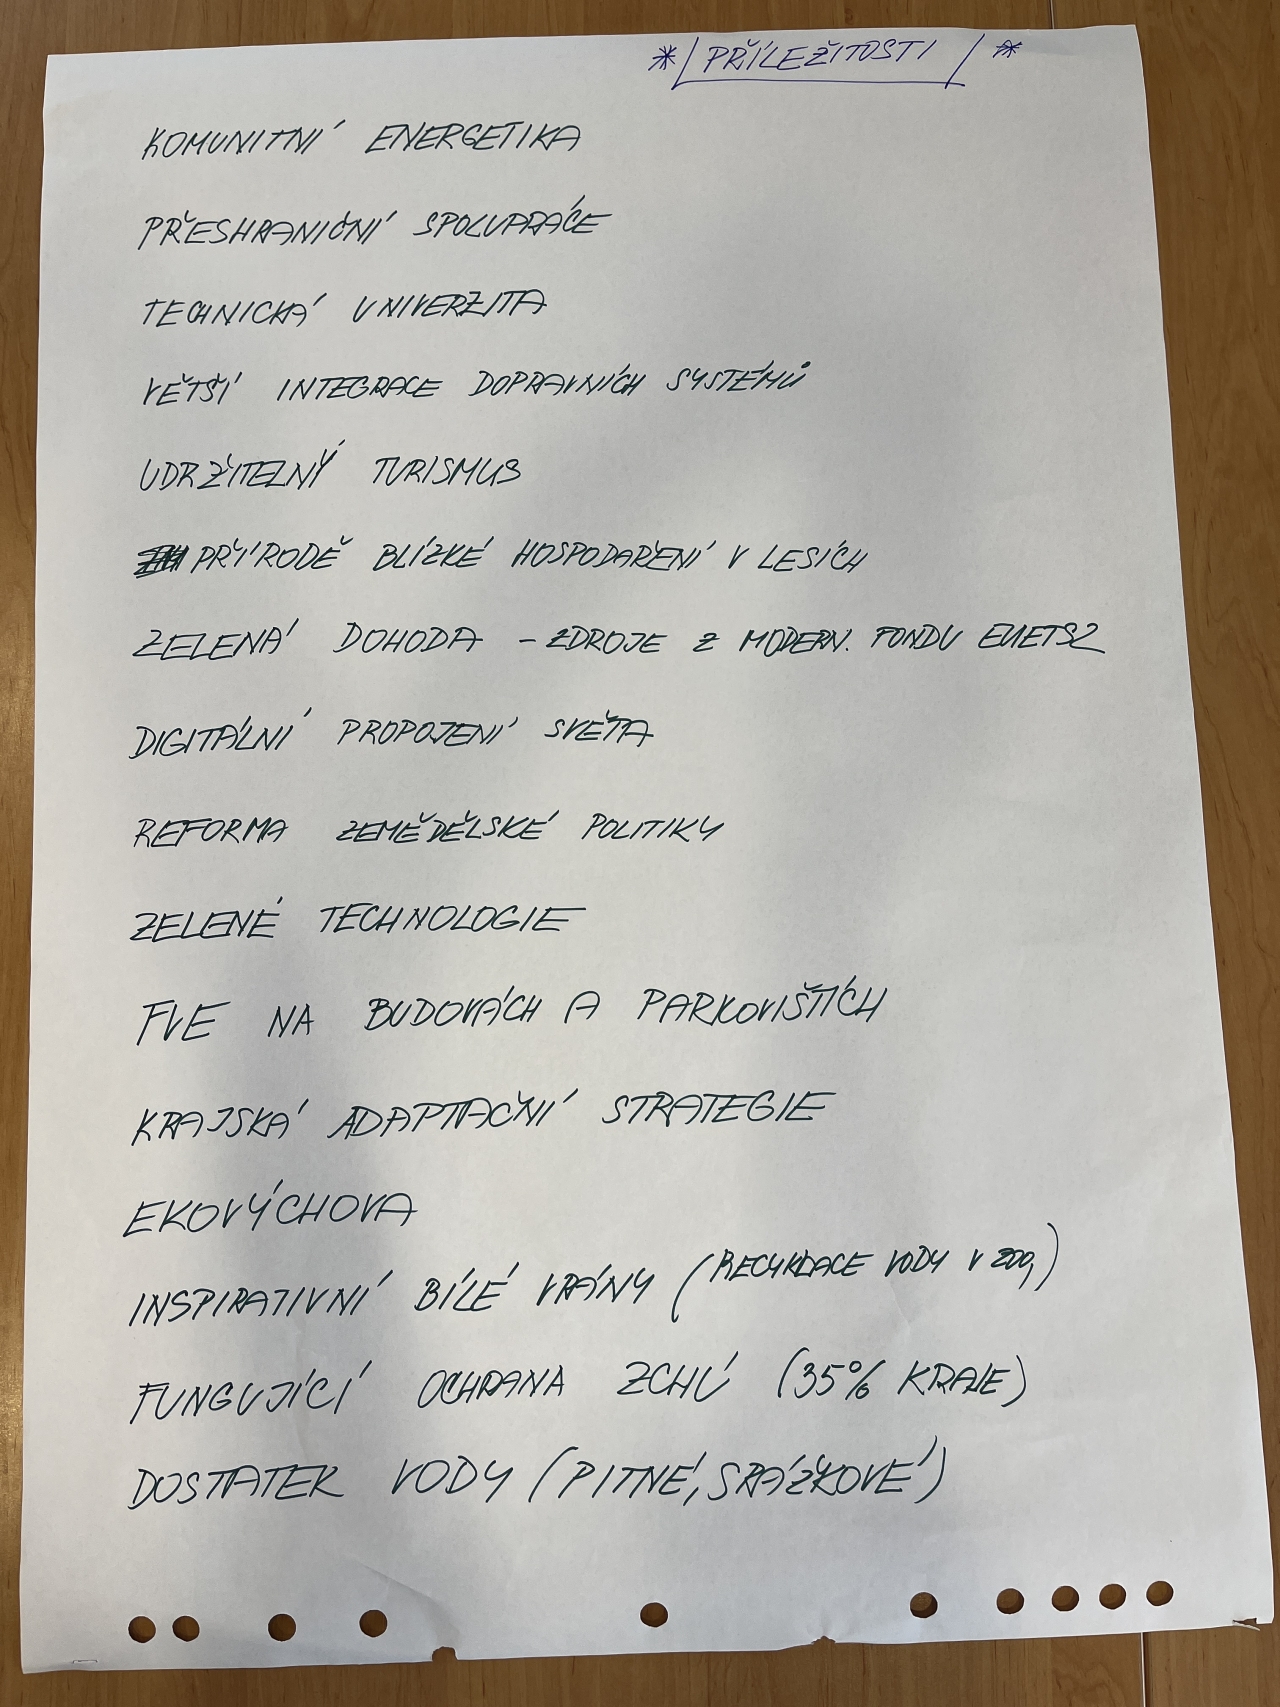 * PŘÍLEŽITOSTI *
KOMUNITNÍ ENERGETIKA
PŘESHRANIČNÍ SPOLUPRÁCE
TECHNICKÁ UNIVERZITA
VĚTŠÍ INTEGRACE DOPRAVNÍCH SYSTÉMŮ
UDRŽITELNÝ TURISMUS
PŘÍRODĚ BLÍZKÉ HOSPODAŘENÍ V LESÍCH
ZELENÁ DOHODA - ZDROJE Z MODERN. FONDU EUETS2
DIGITÁLNÍ PROPOJENÍ SVĚTA
REFORMA ZEMĚDĚLSKÉ POLITIKY
ZELENÉ TECHNOLOGIE
FVE NA BUDOVÁCH A PARKOVIŠTÍCH
KRAJSKÁ ADAPTAČNÍ STRATEGIE
EKOVÝCHOVA
INSPIRATIVNÍ BÍLÉ VRÁNY (RECYKLACE VODY V ZOO,)
FUNGUJÍCÍ OCHRANA ZCHÚ (35% KRAJE)
DOSTATEK VODY (PITNÉ, SRÁŽKOVÉ)